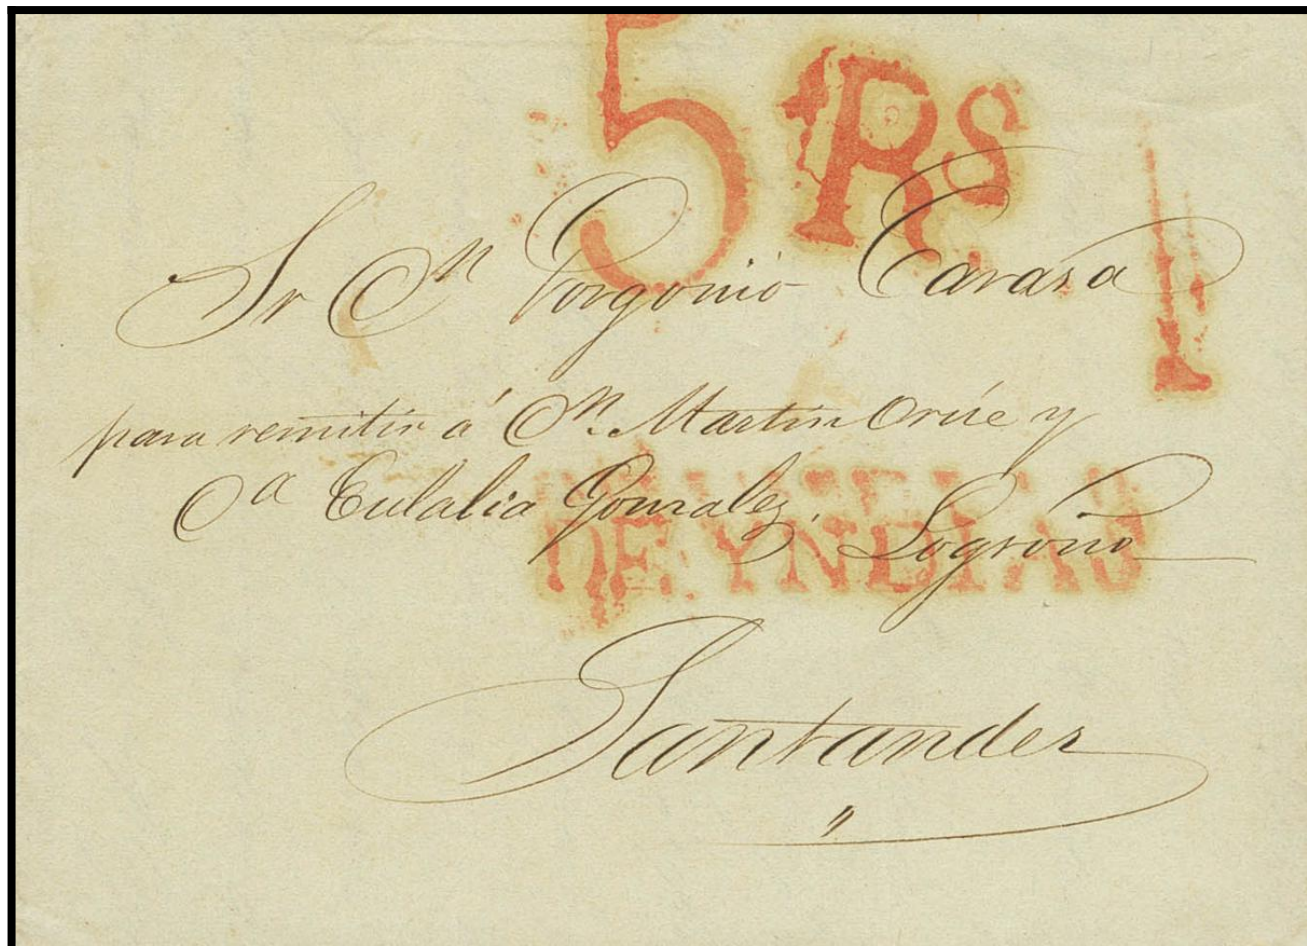 5 Rs
Sr Dn Gorgonio Carasa
1
para remitir á Dn. Martin Orúe y
Da Eulalia Gonzalez, Logroño
DE YNDIAS
Santander